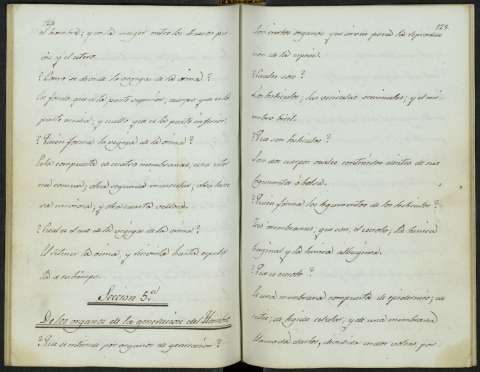 128.
el hombre; y en la muger entre los huesos pu-
vis, y el utero.
?Como se divide la vegiga de la orina?
En fondo, que es la parte superior, cuerpo que es la
parte media, y cuello que es la parte inferior.
?Quien forma la vegiga de la orina?
Esta compuesta de cuatro membranas, una ester-
na comun, otra segunda muscular, otra terce-
ra nerviosa, y otra cuarta vellosa.
?Cual es el uso de la vegiga de la orina?
El retener la orina, y detenerla hasta espeler-
la a su tiempo.
Seccion 5.a
De los organos de la generacion del Hombre
?Que se entiende por organos de generacion?
129.
Los ciertos organos que sirven para la reproduc-
cion de la especie.
?Cuales son?
Los testiculos; las vesiculas seminales; y el mi-
embro viril.
?Que son testiculos?
Son dos cuerpos ovales contenidos dentro de sus
tegumentos ó bolsa.
?Quien forma los tegumentos de los testiculos?
Tres membranas, que son, el escroto, la tunica
vaginal y la tunica albuginea.
?Que es escroto?
Es una membrana compuesta de epidermis, de
cutis, de tegido celular, y de una membrana
llamada dartos, dividida en dos celdas por